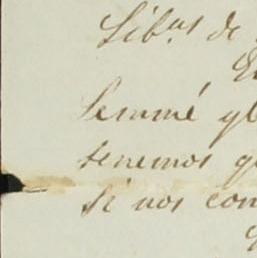 Lib.as de
Semmé y
tenemos q
si nos con